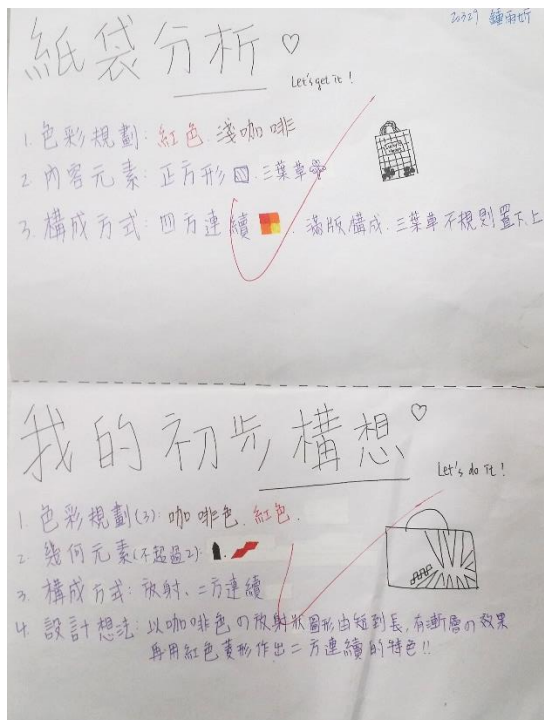 20329 鍾雨妡
紙袋分析♡
Let's get it!
1. 色彩規劃: 紅色. 淺咖啡
2 內容元素: 正方形. 三葉草
3. 構成方式: 四方連續. 滿版構成. 三葉草不規則置下.上
我的初步構想♡
Let's do it!
1. 色彩規劃(3): 咖啡色. 紅色.
2. 幾何元素(不超過2):
3. 構成方式: 放射、二方連續
4. 設計想法: 以咖啡色の放射狀圖形由短到長,有漸層の效果
再用紅色菱形作出二方連續的特色!!